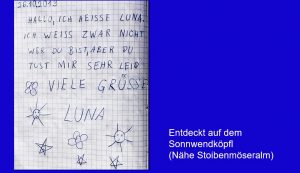 26.10.2013
HALLO, ICH HEISSE LUNA.
ICH WEISS ZWAR NICHT
WER DU BIST, ABER DU
TUST MIR SEHR LEID
VIELE GRÜSSE
LUNA
Entdeckt auf dem
Sonnwendköpfl
(Nähe Stoibenmöseralm)